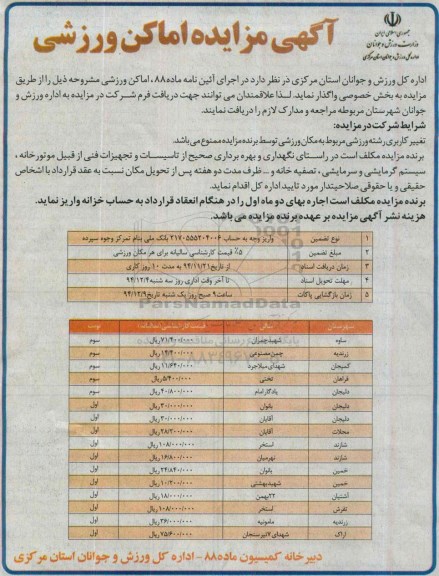 جمهوری اسلامی ایران
وزارت ورزش و جوانان
آگهی مزایده اماکن ورزشی
اداره کل ورزش و جوانان استان مرکزی در نظر دارد در اجرای آئین نامه ماده ۸۸، اماکن ورزشی مشروحه ذیل را از طریق
مزایده به بخش خصوصی واگذار نماید. لذا علاقمندان می توانند جهت دریافت فرم شرکت در مزایده به اداره ورزش و
جوانان شهرستان مربوطه مراجعه و مدارک لازم را دریافت نمایند.
شرایط شرکت در مزایده:
تغییر کاربری رشته ورزشی مربوط به مکان ورزشی توسط برنده مزایده ممنوع می باشد.
برنده مزایده مکلف است در راستای نگهداری و بهره برداری صحیح از تاسیسات و تجهیزات فنی از قبیل موتورخانه،
سیستم گرمایشی و سرمایشی، تصفیه خانه و ... ظرف مدت دو هفته پس از تحویل مکان نسبت به عقد قرارداد با اشخاص
حقیقی و یا حقوقی صلاحیتدار مورد تایید اداره کل اقدام نماید.
برنده مزایده مکلف است اجاره بهای دو ماه اول را در هنگام انعقاد قرارداد به حساب خزانه واریز نماید.
هزینه نشر آگهی مزایده بر عهده برنده مزایده می باشد.
۱ نوع تضمین واریز وجه به حساب ۲۱۷۰۵۵۵۲۰۴۰۰۶ بانک ملی بنام تمرکز وجوه سپرده
۲ مبلغ تضمین ۵٪ قیمت کارشناسی سالیانه برای هر مکان ورزشی
۳ زمان دریافت اسناد از تاریخ ۹۴/۱۱/۲۱ به مدت ۱۰ روز کاری
۴ مهلت تحویل اسناد تا آخر وقت اداری روز سه شنبه ۹۴/۱۲/۴
۵ زمان بازگشایی پاکات ساعت ۹ صبح روز یک شنبه تاریخ ۹۴/۱۲/۹
شهرستان قیمت کارشناسی (سالیانه) نوبت
ساوه شهید چمران ۷۱/۴۰۰/۰۰۰ ریال سوم
زرندیه چمن مصنوعی ریال سوم
کمیجان شهدای میلاجرد ۱۱/۶۴۰/۰۰۰ ریال سوم
فراهان تختی ۵/۴۰۰/۰۰۰ ریال سوم
دلیجان یادگار امام ۴۰/۸۰۰/۰۰۰ ریال سوم
دلیجان بانوان ۳۰/۰۰۰/۰۰۰ ریال اول
دلیجان آقایان ۳۰/۰۰۰/۰۰۰ ریال اول
محلات آقایان ۳۸/۴۰۰/۰۰۰ ریال اول
شازند استخر ۱۰۸/۰۰۰/۰۰۰ ریال اول
شازند نهرمیان ۱۶/۸۰۰/۰۰۰ ریال اول
خمین بانوان ۲۴/۸۴۰/۰۰۰ ریال اول
خمین شهید بهشتی ۱۰/۲۰۰/۰۰۰ ریال اول
آشتیان ۲۲ بهمن ۱۸/۰۰۰/۰۰۰ ریال اول
تفرش استخر ۱۰۸/۰۰۰/۰۰۰ ریال اول
زرندیه مامونیه ۳۶/۰۰۰/۰۰۰ ریال اول
اراک شهدای ۷ تیر سنجان ۷۵/۶۰۰/۰۰۰ ریال اول
دبیرخانه کمیسیون ماده ۸۸ - اداره کل ورزش و جوانان استان مرکزی